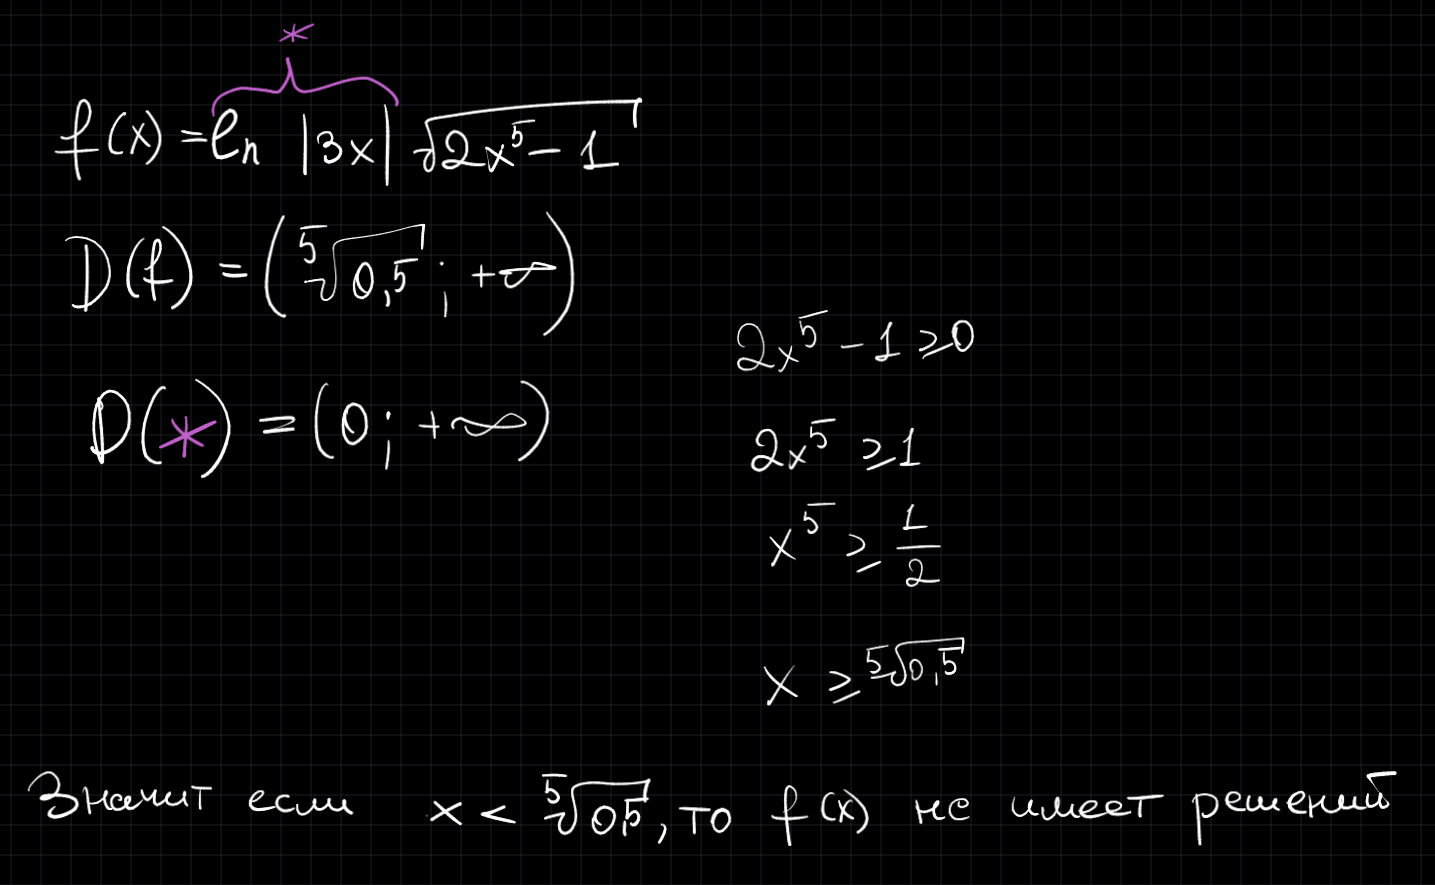 *
f(x) = ln |3x| √(2x⁵ - 1)
D(f) = (⁵√0,5 ; +∞)
D(*) = (0; +∞)
2x⁵ - 1 ⩾ 0
2x⁵ ⩾ 1
x⁵ ⩾ 1/2
x ⩾ ⁵√0,5
Значит если x < ⁵√0,5, то f(x) не имеет решений